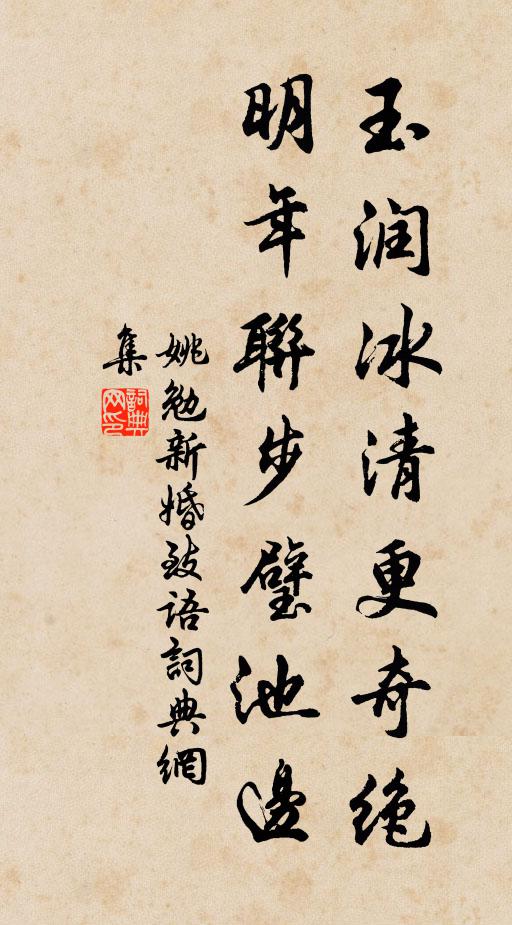 玉润冰清更奇绝
明年聯步璧池邊
姚勉新婚致语詞典網
集
詞典
网印